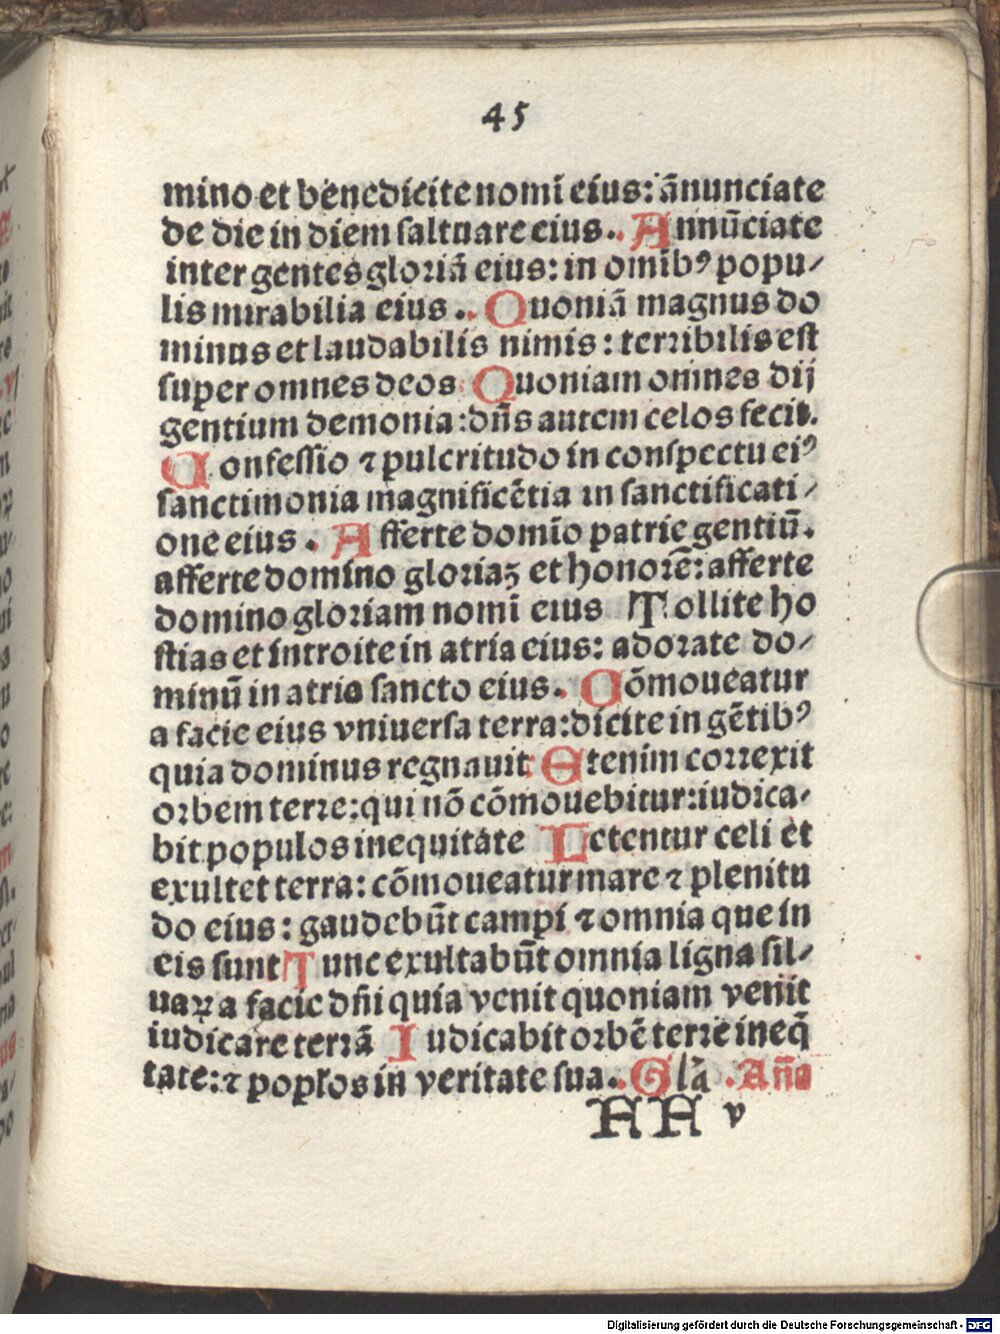 45
mino et benedicite nomī eius: ānunciate
de die in diem saltuare eius.. Annūciate
inter gentes gloriā eius: in omībꝰ popu/
lis mirabilia eius .. Quoniā magnus do
minus et laudabilis nimis: terribilis est
super omnes deos Quoniam omnes dij
gentium demonia: dn̄s autem celos fecit.
Confessio ⁊ pulcritudo in conspectu eiꝰ
sanctimonia magnificētia in sanctificati/
one eius . Afferte domīo patrie gentiū.
afferte domino gloriaꝫ et honorē: afferte
domino gloriam nomī eius Tollite ho
stias et introite in atria eius: adorate do/
minū in atrio sancto eius. Cōmoueatur
a facie eius vniuersa terra: dicite in gētibꝰ
quia dominus regnauit Etenim correxit
orbem terre: qui nō cōmouebitur: iudica/
bit populos in equitate Letentur celi et
exultet terra: cōmoueatur mare ⁊ plenitu
do eius: gaudebūt campi ⁊ omnia que in
eis sunt Tunc exultabūt omnia ligna sil/
uaꝝ a facie dn̄i quia venit quoniam venit
iudicare terrā Iudicabit orbē terre in eq̄
tate: ⁊ popl̓os in veritate sua.. Glā .An̄a
AA v
Digitalisierung gefördert durch die Deutsche Forschungsgemeinschaft - DFG